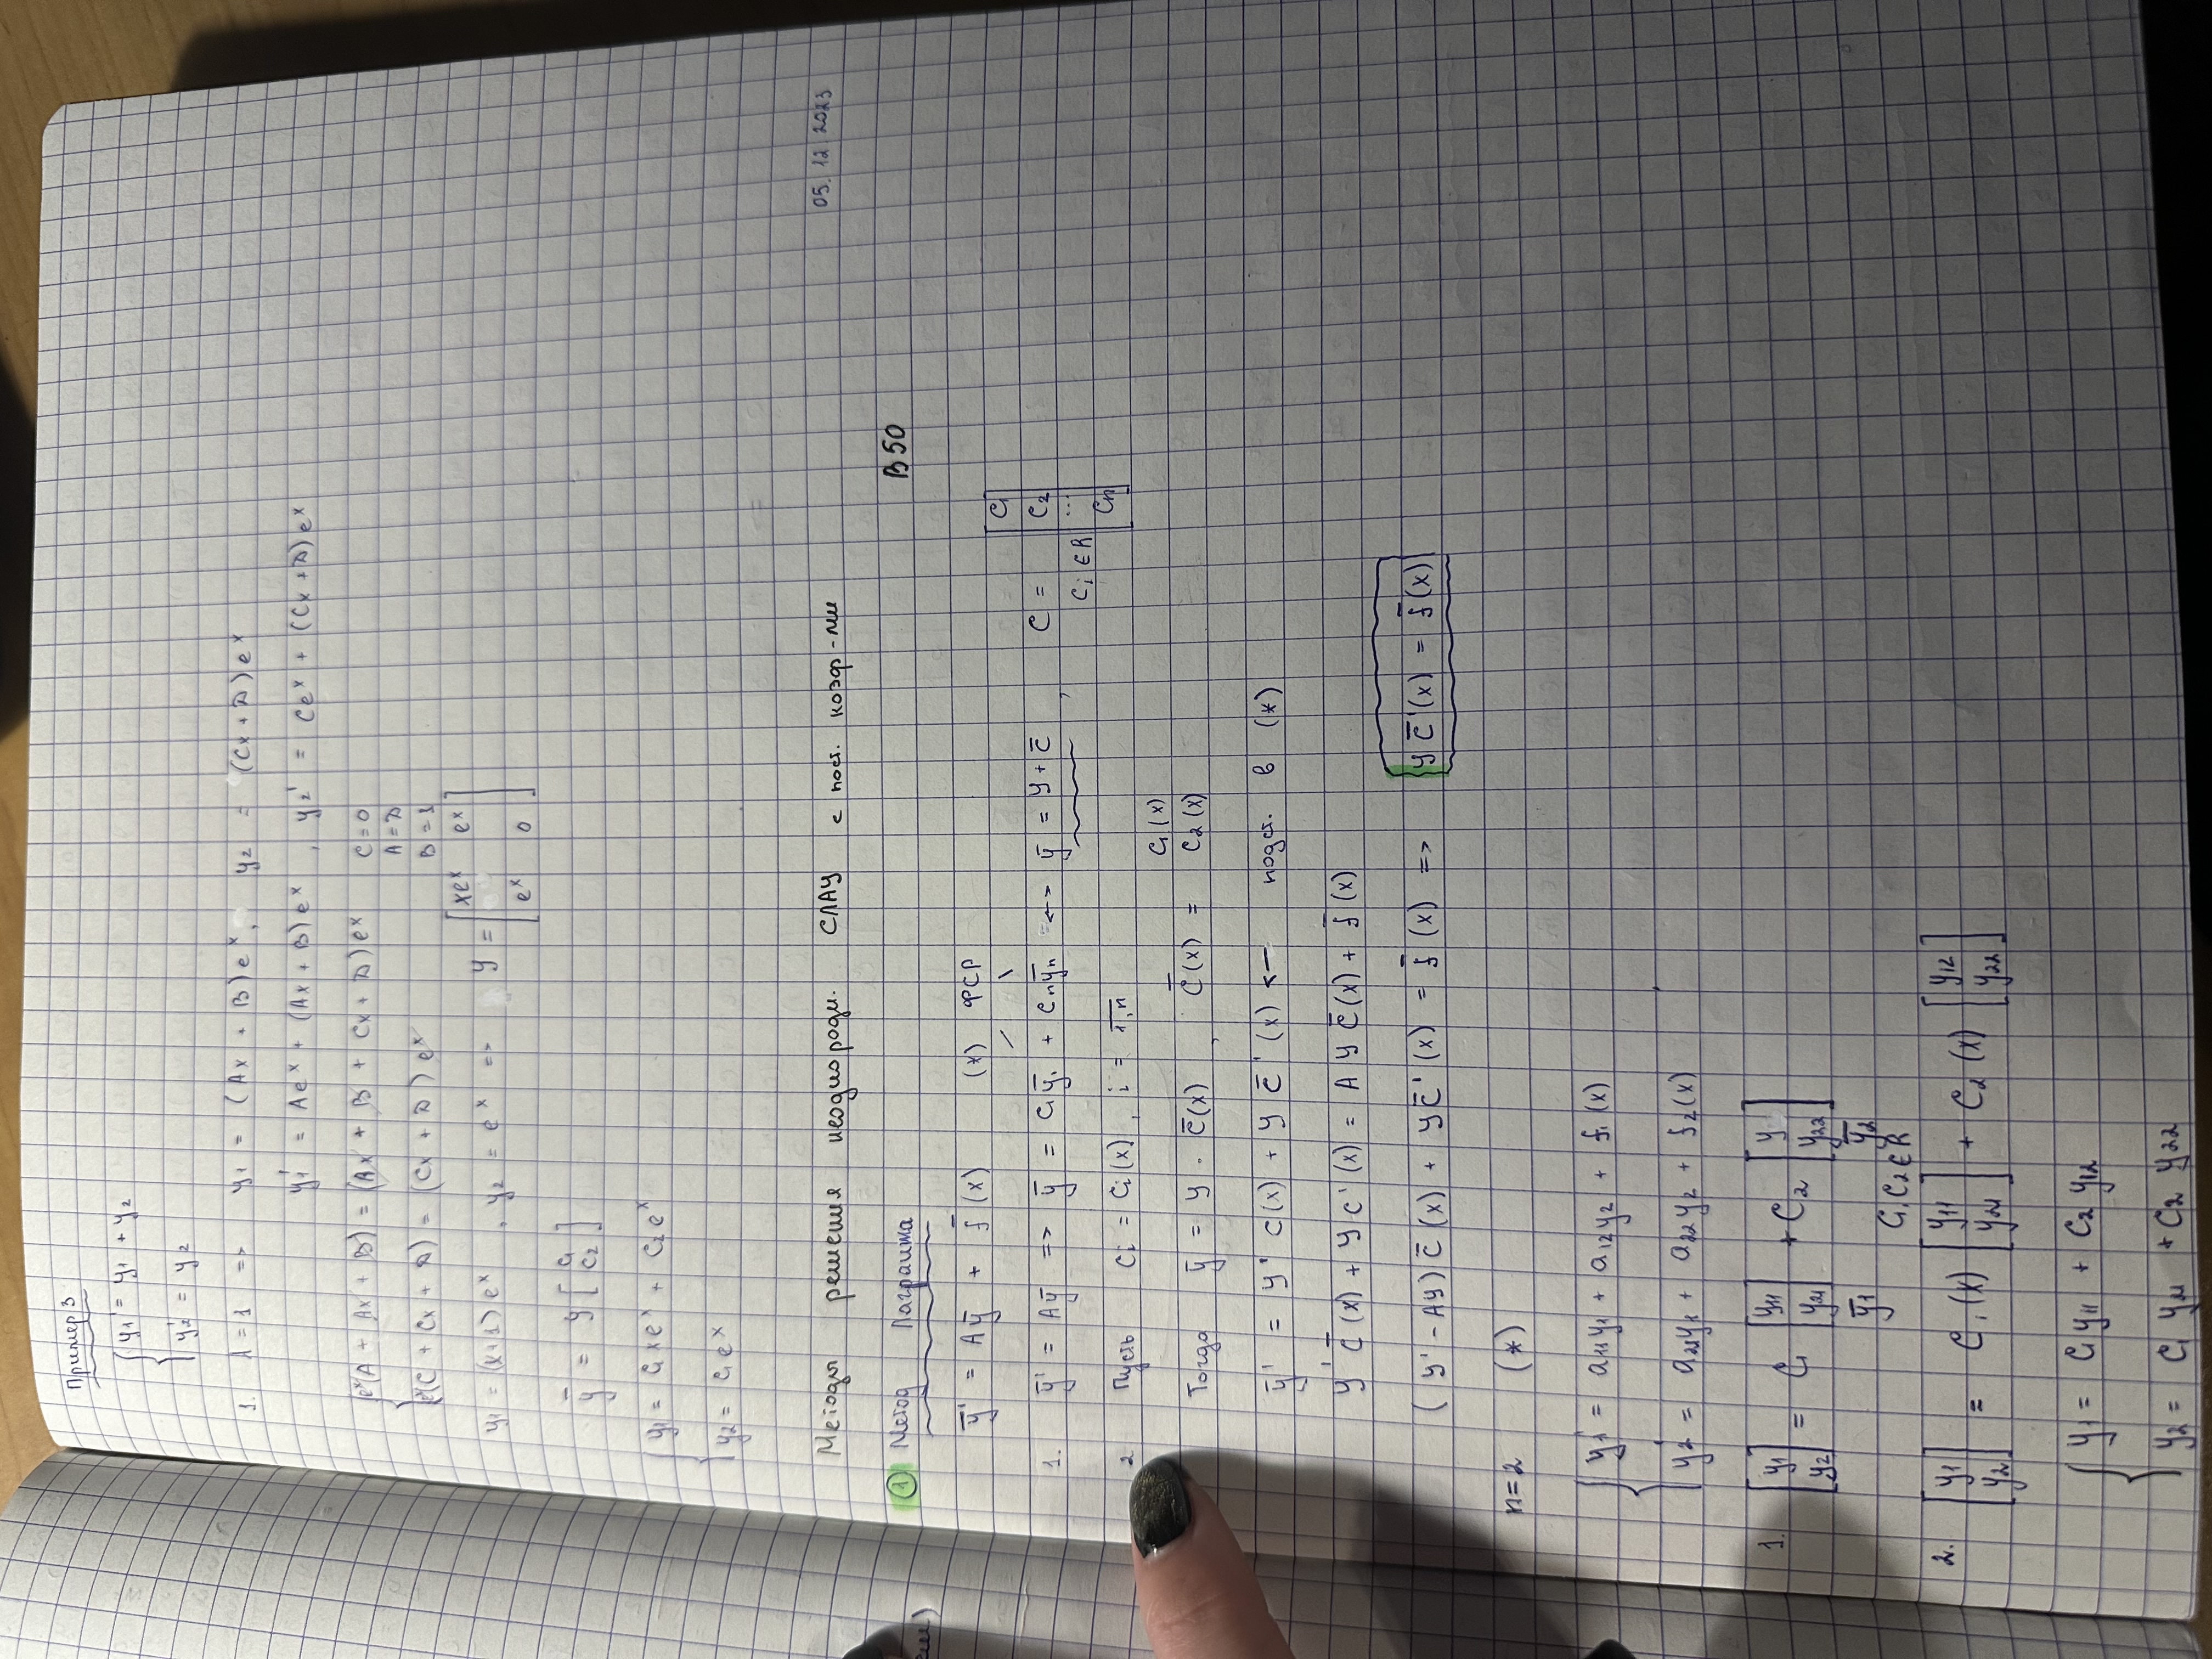 Пример 3
y₁' = y₁ + y₂
y₂' = y₂
1. λ=1 => y₁ = (Ax + B)eˣ, y₂ = (Cx + D)eˣ
y₁' = Aeˣ + (Ax + B)eˣ, y₂' = Ceˣ + (Cx + D)eˣ
eˣ(A + Ax + B) = (Ax + B + Cx + D)eˣ C=0
A=D
eˣ(C + Cx + D) = (Cx + D)eˣ B=1
y₁ = (x+1)eˣ, y₂ = eˣ => Y = [xeˣ eˣ
eˣ 0]
ȳ = Y [C₁
C₂]
y₁ = C₁xeˣ + C₂eˣ
y₂ = C₁eˣ
Методы решения неоднородн. СЛАУ с пост. коэф-ми 05.12.2023
① Метод Лагранжа B50
ȳ' = Aȳ + f̄(x) (*) ФСР
1. ȳ' = Aȳ => ȳ = C₁ȳ₁ + Cₙȳₙ <-> ȳ = Y + C̄, C = [C₁
C₂
...
Cₙ]
Cᵢ ∈ R
2 Пусть Cᵢ = Cᵢ(x), i = 1,n
Тогда ȳ = Y · C̄(x), C̄(x) = C₁(x)
C₂(x)
ȳ' = Y' C(x) + Y C̄'(x) <- подст. в (*)
Y' C̄(x) + Y C'(x) = A Y C̄(x) + f̄(x)
(Y' - AY) C̄(x) + Y C̄'(x) = f̄(x) => Y C̄'(x) = f̄(x)
n=2 (*)
y₁' = a₁₁y₁ + a₁₂y₂ + f₁(x)
y₂' = a₂₁y₁ + a₂₂y₂ + f₂(x)
1. [y₁
y₂] = C₁ [y₁₁
y₂₁] + C₂ [y
y₂₂]
ȳ₁ ȳ₂
C₁, C₂ ∈ R
2. [y₁
y₂] = C₁(x) [y₁₁
y₂₁] + C₂(x) [y₁₂
y₂₂]
y₁ = C₁y₁₁ + C₂ y₁₂
y₂ = C₁ y₂₁ + C₂ y₂₂